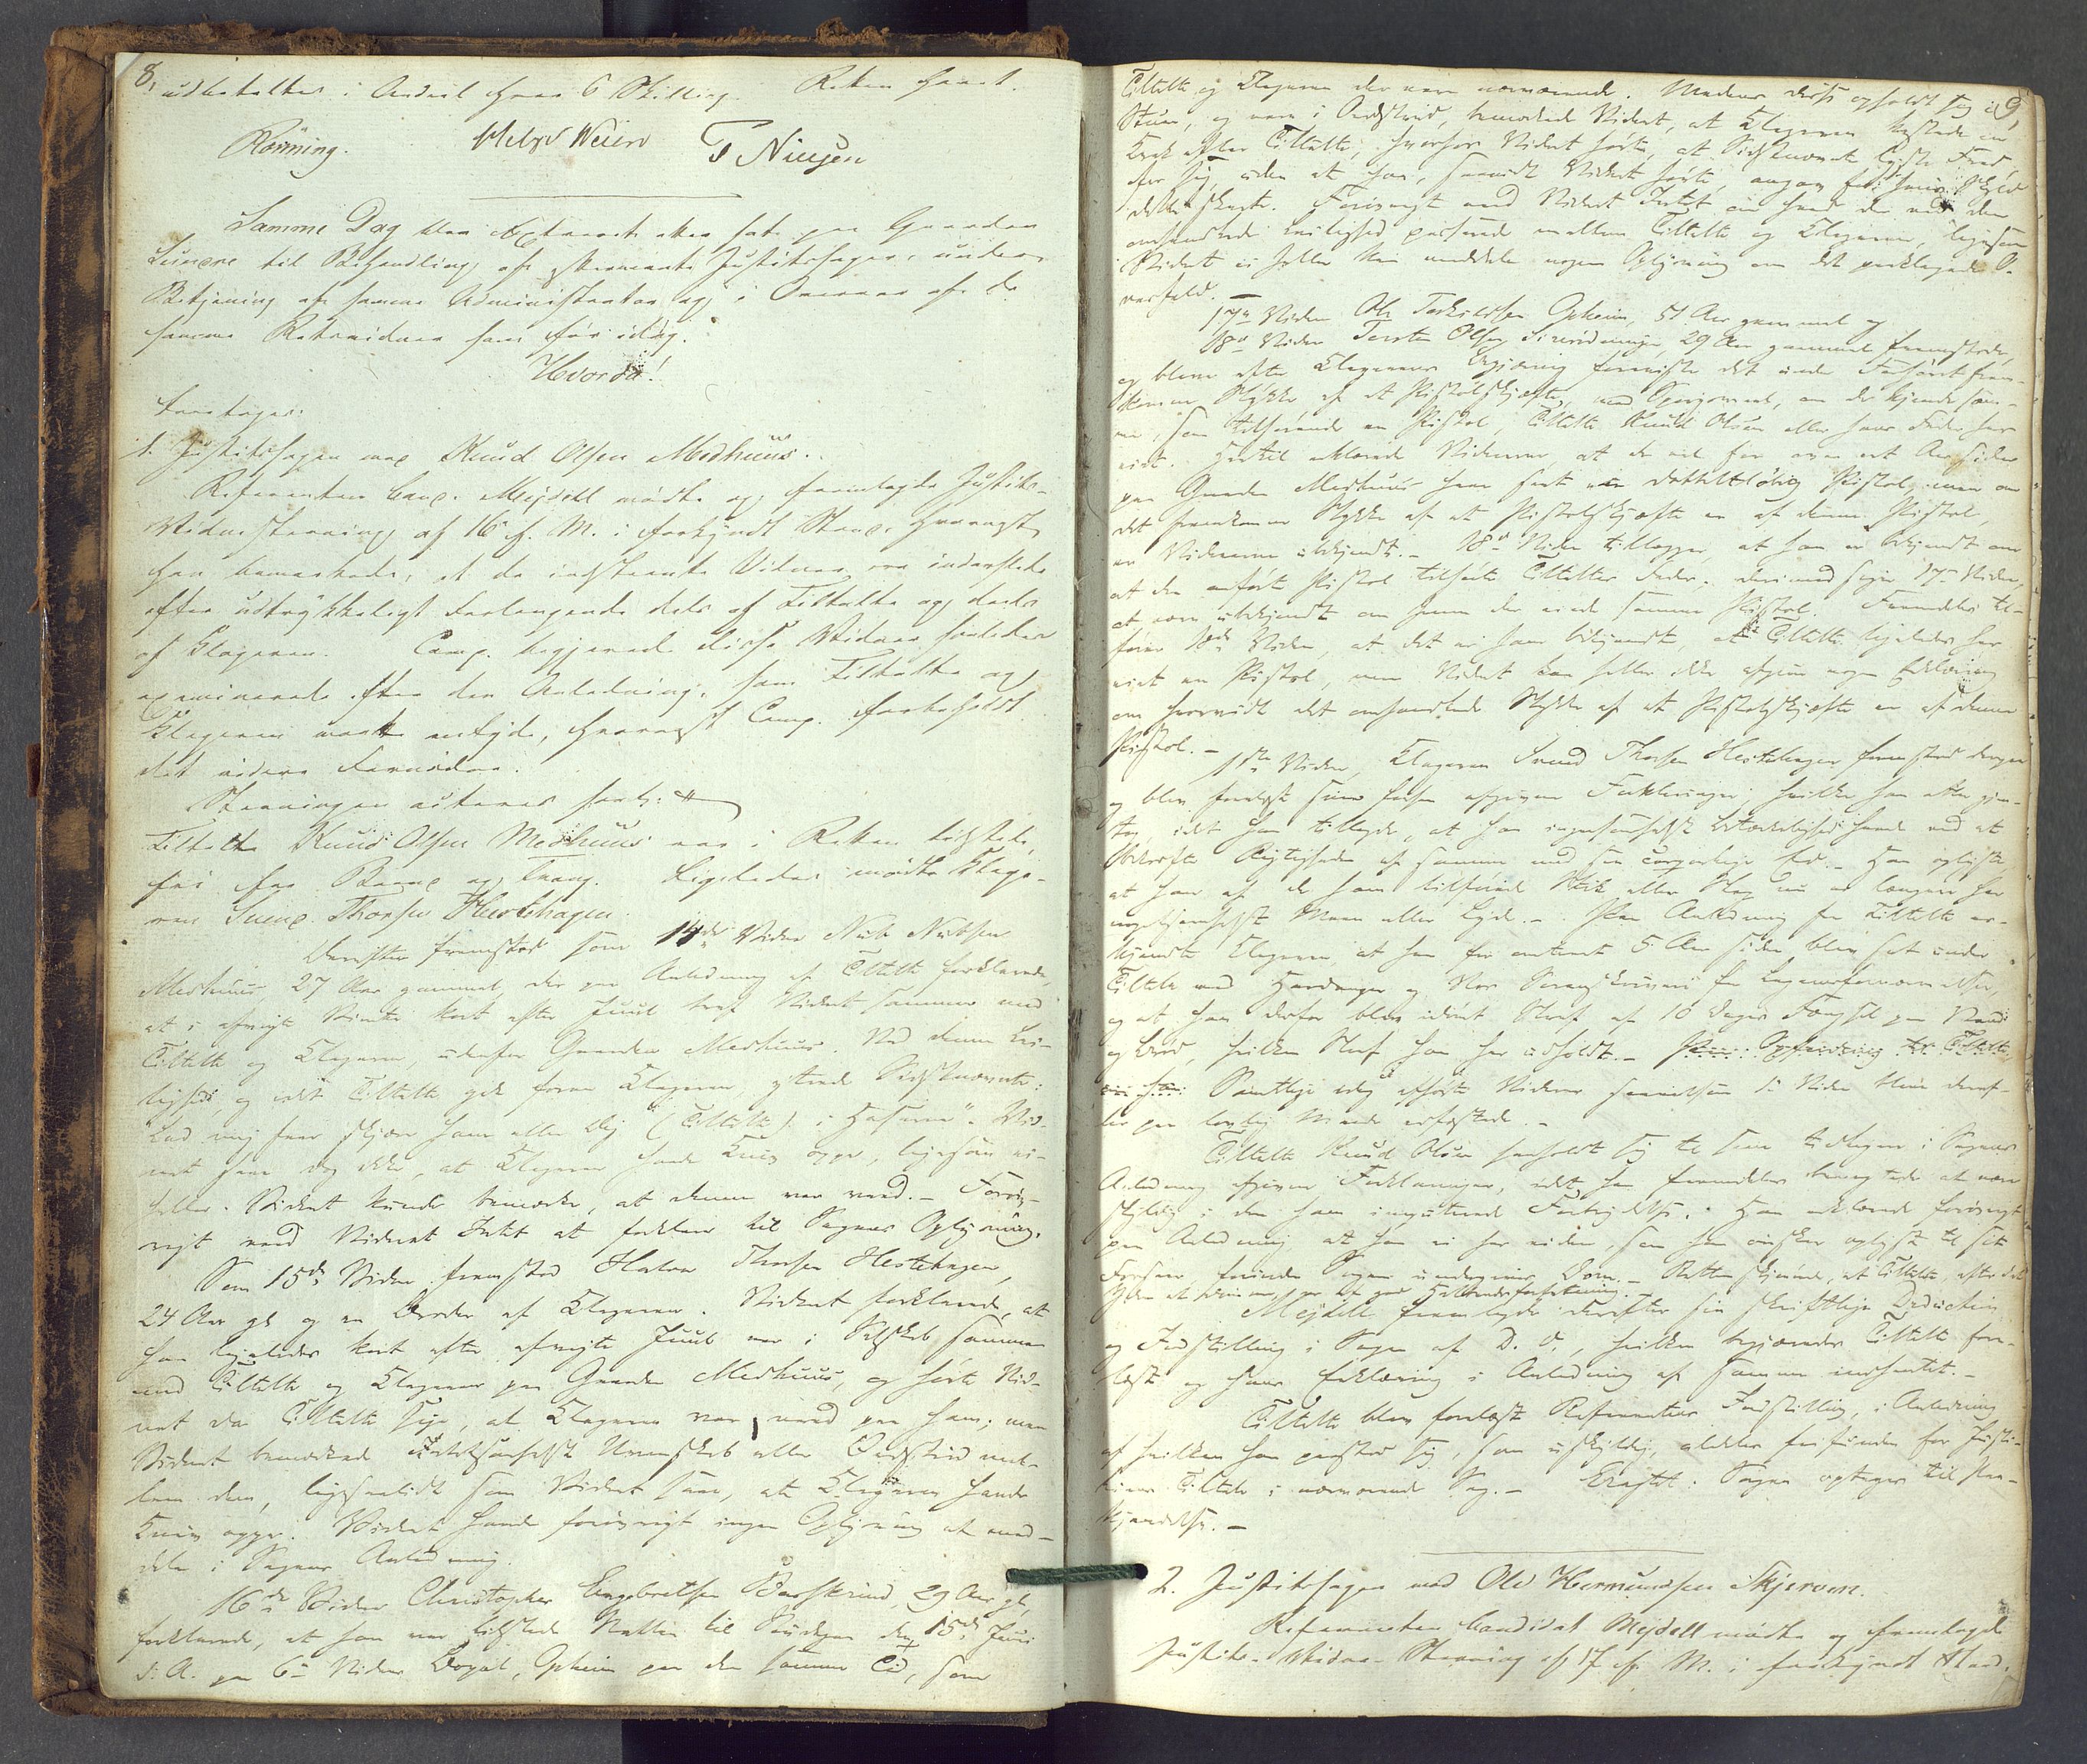 8,
udbetaltes i Andeel hver 6 Skilling. Retten hævet.
Rönning. Weien T Nielsen
Samme Dag blev Extraret atter sat paa Gaarden
til Behandling af Justitssager, under
Betjening af samme Administrator og i Overvær af de
samme Retsvidner som før idag.
Hvorda!
foretoges:
1. Justitssagen mod Knud Olsen Medhuus.
Referenten Cand. Mejdell mødte og fremlagde Justits-
Vidnestevning af 16 f. M. i forkyndt Stand, hvornæst
han bemærkede, at de indstevnte Vidner ere indkaldte
efter udtrykkeligt Forlangende dels af Tiltalte og dels
af Klageren. Comp. begjærede disse Vidner saaledes
examinerede efter den Anledning, som Tiltalte og
Klageren maatte antyde, hvornæst Comp. forbeholdt
det videre Fornødne.
Stevningen acteres saal.
Tiltalte Knud Olsen Medhuus var i Retten tilstede,
fri for Baand og Tvang. Ligeledes mødte Klage-
ren Svend Thorsen Hestehagen.
Derefter fremstod som 14de Vidne Nub Nubsen
Medhuus, 27 Aar gammel, der paa Anledning af Tiltalte forklarede,
at i afvigte Vinter kort efter Juul traf Vidnet sammen med
Tiltalte og Klageren udenfor Gaarden Medhuus. Ved denne Lei-
lighed, og idet Tiltalte gik foran Klageren, yttrede Sidstnævnte:
"Lad mig faae skjære ham eller dig (Tiltalte) i Haserne". Vid-
net saae dog ikke, at Klageren havde Kniv oppe, ligesom ei-
heller Vidnet kunde bemærke, at denne var vred. - Forøv-
rigt vred Vidnet Intet at forklare til Sagens Oplysning.
Som 15de Vidne fremstod Halvor Thorsen Hestehagen,
24 Aar gl og en Broder af Klageren. Vidnet forklarede, at
han ligeledes kort efter afvigte Juul var i Selskab sammen
med Tiltalte og Klageren paa Gaarden Medhuus, og hørte Vid-
net da Tiltalte sige, at Klageren var vred paa ham; men
Vidnet bemærkede intetsomhelst Uvenskab eller Ordstrid mel-
lem dem, ligesaalidt som Vidnet saae, at Klageren havde
Kniv oppe. Vidnet havde forøvrigt ingen Oplysning at med-
dele i Sagens Anledning.
16de Vidne Christopher Engebretsen Bærskrud, 29 Aar gl,
forklarede, at han var tilstede Natten til Søndagen den 15de Juni
d. A. paa 6te Vidnes Bopæl, Opheim paa den samme Tid, som
9,
Tiltalte og Klageren der vare nærværende. Medens disse opholdt sig i
Stuen, og vare i Ordstrid, bemærkede Vidnet, at Klageren kastede en
Krak efter Tiltalte, hvorfor Vidnet hørte, at Sidstnævnte lyste Fred
for sig, uden at han, saavidt Vidnet hørte, angav for hvis Skyld
dette skeete. Forøvrigt ved Vidnet Intet om hvad der ved den
omhandlede Leilighed passerede mellem Tiltalte og Klageren, ligesom
Vidnet ei heller kan meddele nogen Oplysning om det paaklagede O-
verfald. -
17de Vidne Ole Torkildsen Opheim, 51 Aar gammel og
18de Vidne Torsten Olsen, 29 Aar gammel, fremstode,
og bleve efter Klagerens Begjæring foreviste det under Forhøret frem-
komne Stykke af et Pistolskjæfte, med Spørgsmaal, om de kjende sam-
me, som tilhørende en Pistol, Tiltalte Knud Olsen eller hans Fader har
eiet. Hertil erklærede Vidnerne at de vel for over et Aar siden
paa Gaarden Medhuus have seet en dobbeltløbig Pistol; men om
det fremkomne Stykke af et Pistolskjæfte er af denne Pistol,
er Vidnerne ubekjendt. - 18de Vidne tillægger, at han er bekjendt om
at den anførte Pistol tilhørte Tiltaltes Fader; derimod siger 17de Vidne,
at være ubekjendt om hvem der eiede samme Pistol. Fremdeles til-
føier 18de Vidne, at det er ham bekjendt at Tiltalte ligeledes har
eiet en Pistol, men Vidnet kan heller ikke afgive nogen Erklæring
om hvorvidt det omhandlede Stykke af et Pistolskjæfte er af denne
Pistol. -
1ste Vidne, Klageren Svend Thorsen Hestehagen fremstod derpaa
og blev forelæst sine forhen afgivne Forklaringer, hvilke han atter gjen-
tog, idet han tillagde, at han ingensomhelst Betænkelighed havde ved at
bekræfte Rigtigheden af samme med sin corporlige Eed. - Han oplyste
at han af de ham tilføiede Stik eller Slag nu ei længere har
nogetsomhelst Meen eller Lyde. - Paa Anledning fra Tiltalte er-
kjendte Klageren, at han for omtrent 5 Aar siden blev sat under
Tiltale ved Hardanger og Vos Sorenskriveri for Legemsfornærmelse,
og at han derfor blev idømt Straf af 10 Dages Fængsel paa Vand
og Brød, hvilken Straf han har udholdt. -
Samtlige idag afhørte Vidner saavelsom 1ste Vidne bleve deref-
ter paa lovlig Maade edfæstede. -
Tiltalte Knud Olsen henholdt sig til sine tidligere i Sagens
Anledning afgivne Forklaringer, idet han fremdeles benægtede at være
skyldig i den ham imputerede Forbrydelse. Han erklærede forøvrigt
paa Anledning at han ei har videre, som han ønsker oplyst til sit
Forsvar, forinden Sagen undergives Dom. - Retten skjønnede, at Tiltalte, efter det
Mejdell fremlagde derefter sin skriftlige Deduction
og Indstilling i Sagen af D. D., hvilken begjæredes Tiltalte fore-
læst og hans Erklæring i Anledning af samme indhentet. -
Tiltalte blev forelæst Referentens Indstilling, i Anledning
af hvilken han paastod sig, som uskyldig, aldeles frifunden for Justi-
tiens Tiltale i nærværende Sag. - Eragtet: Sagen optages til Paa-
kjendelse. -
2. Justitssagen mod Ole Hermundsen Skjerven.
Referenten Candidat Mejdell mødte og fremlagde
Justits-Vidne-Stevning af 17 f. M. i forkyndt Stand.